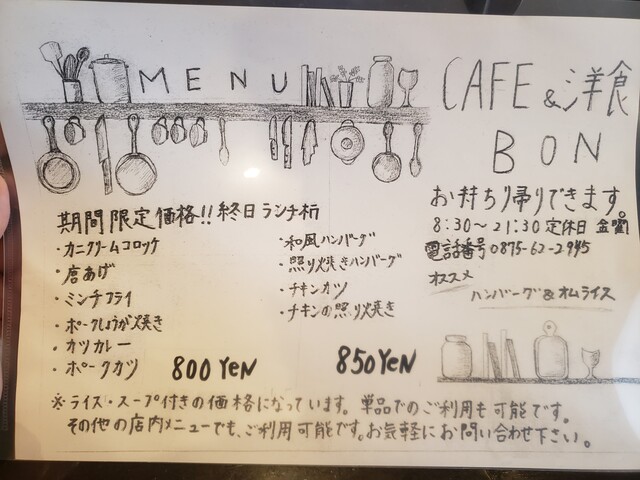 MENU
CAFE & 洋食
BON
お持ち帰りできます。
8:30〜21:30 定休日 金曜
電話番号 0875-62-2945
オススメ
ハンバーグ&オムライス
期間限定価格!! 終日ランチ
・カニクリームコロッケ
・唐あげ
・ミンチフライ
・ポークしょうが焼き
・カツカレー
・ポークカツ
800 YeN
・和風ハンバーグ
・照り焼きハンバーグ
・チキンカツ
・チキンの照り焼き
850 YeN
※ライス・スープ付きの価格になっています。単品でのご利用も可能です。
その他の店内メニューでも、ご利用可能です。お気軽にお問い合わせ下さい。